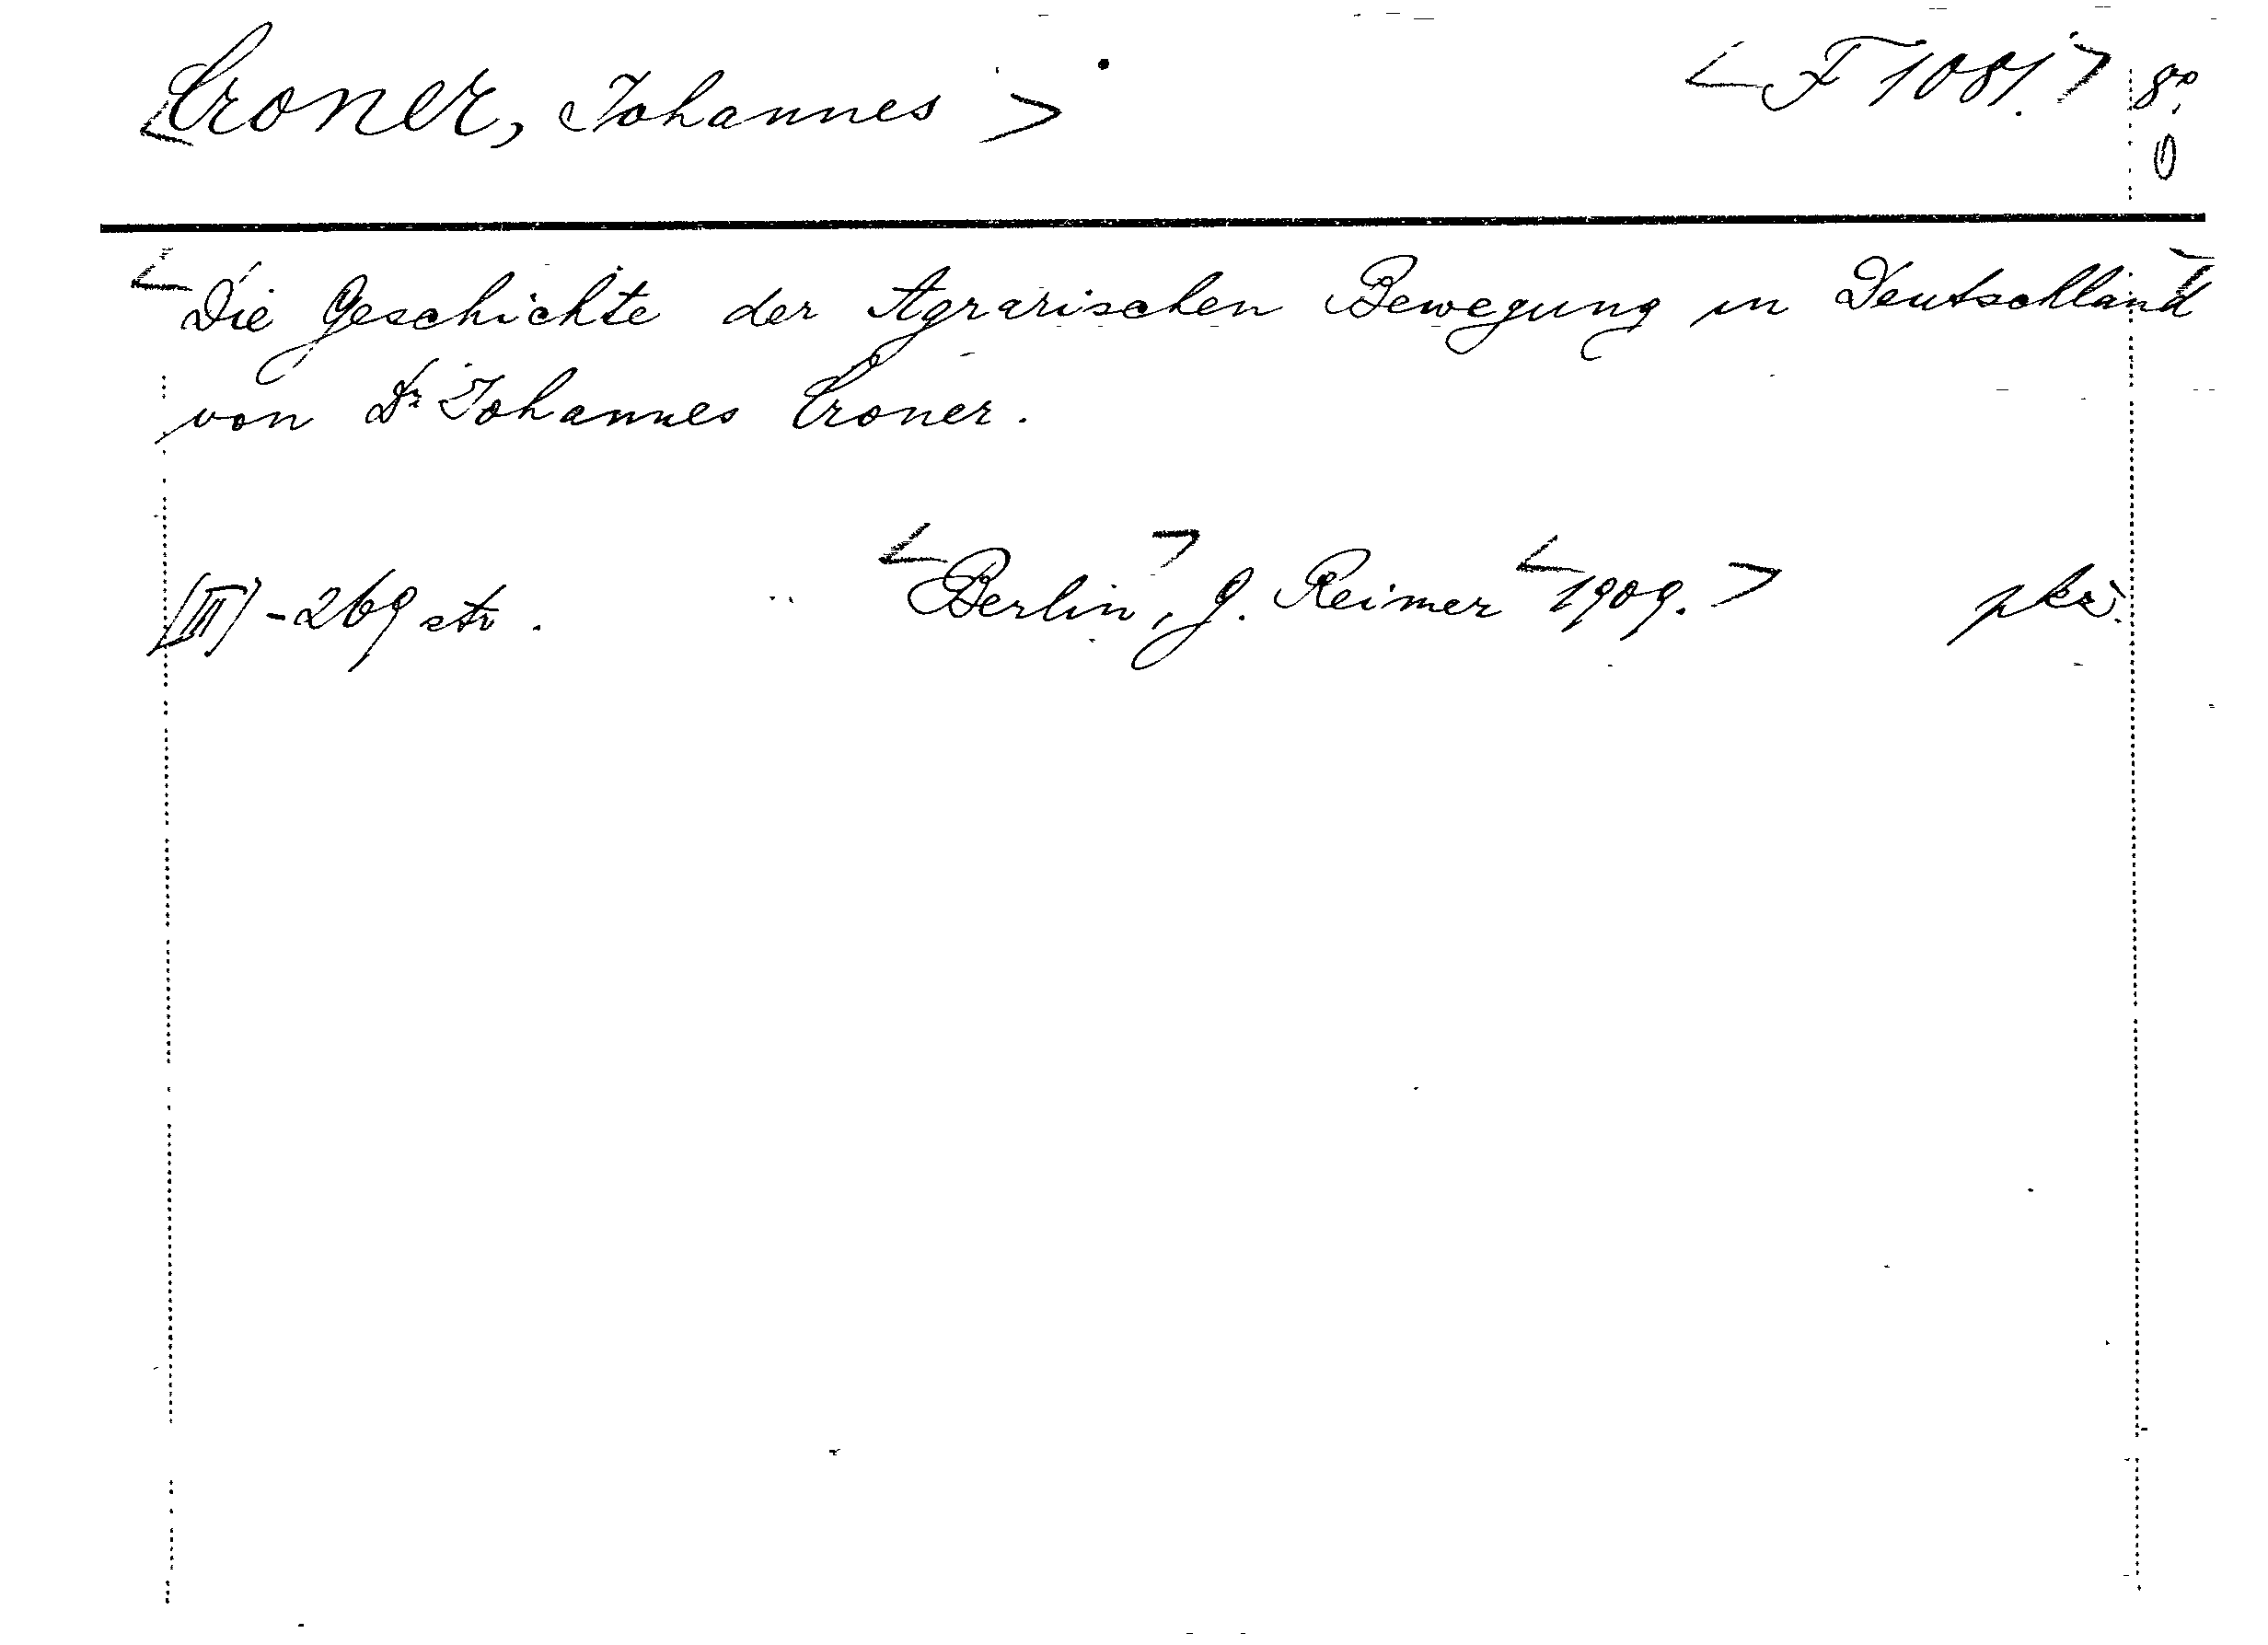 <Croner, Johannes> <F 1081.> 8°.
0
<Die Geschichte der Agrarischen Bewegung in Deutschland>
von Dr Johannes Croner.
[III]-269 str. <Berlin>, G. Reimer <1909.> pks.